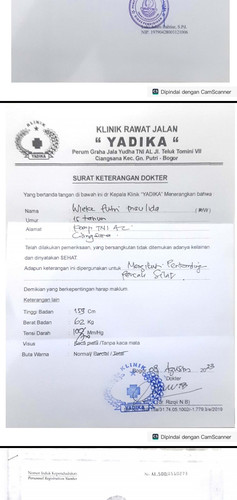 NIP. 197904200801211006
Dipindai dengan CamScanner
KLINIK
YADIKA
KLINIK RAWAT JALAN
" YADIKA "
Perum Graha Jala Yudha TNI AL Jl. Teluk Tomini VII
Ciangsana Kec. Gn. Putri - Bogor
SURAT KETERANGAN DOKTER
Yang bertanda tangan di bawah ini dr Kepala Klinik "YADIKA" Menerangkan bahwa
Nama Putri Maulida
Umur 15 tahun
Alamat Komp TNI AL
Ciangsana
Telah dilakukan pemeriksaan, yang bersangkutan tidak ditemukan adanya kelainan
dan dinyatakan SEHAT
Adapun keterangan ini dipergunakan untuk : Mengikuti Pertandingan
Pencak Silat
Demikian yang berkepentingan harap maklum
Keterangan lain
Tinggi Badan : 153 Cm
Berat Badan : 62 Kg
Tensi Darah : MmHg
Visus : Kaca mata /Tanpa kaca mata
Buta Warna : Normal/ Partial / Total
08 Agustus 2023
Dokter
YADIKA
Dipindai dengan CamScanner
Nomor Induk Kependudukan
Personal Registration Number